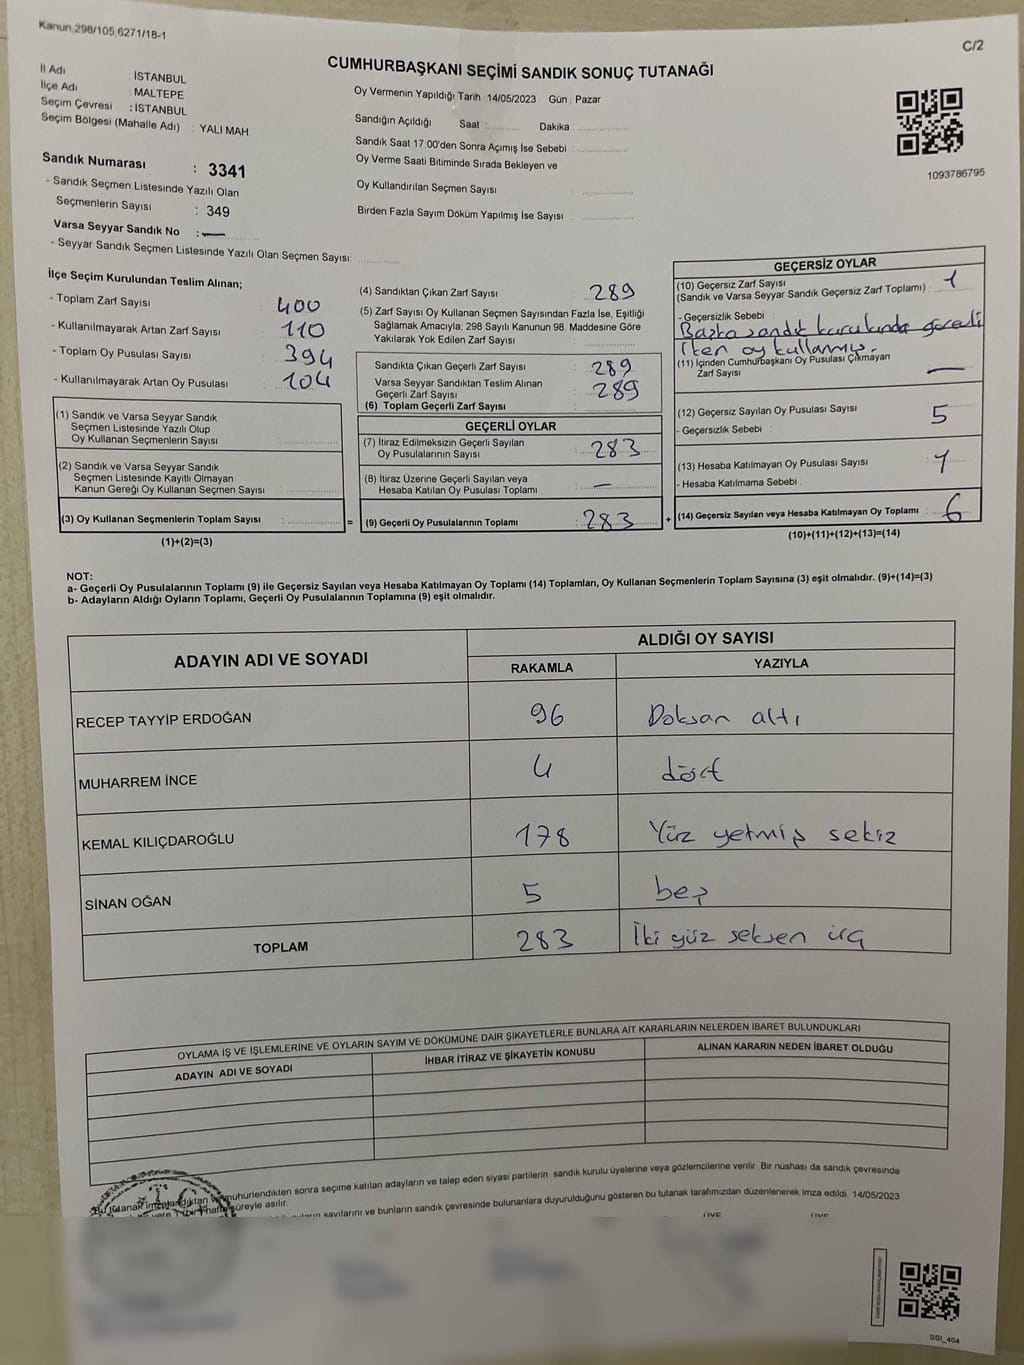 Kanun 298/105,6271/18-1
C/2
CUMHURBAŞKANI SEÇİMİ SANDIK SONUÇ TUTANAĞI
İl Adı : İSTANBUL
İlçe Adı : MALTEPE
Seçim Çevresi : İSTANBUL
Seçim Bölgesi (Mahalle Adı) : YALI MAH.
Sandık Numarası : 3341
- Sandık Seçmen Listesinde Yazılı Olan
Seçmenlerin Sayısı : 349
Varsa Seyyar Sandık No : —
- Seyyar Sandık Seçmen Listesinde Yazılı Olan Seçmen Sayısı:
Oy Vermenin Yapıldığı Tarih : 14/05/2023 Gün : Pazar
Sandığın Açıldığı Saat : Dakika :
Sandık Saat 17:00'den Sonra Açımış İse Sebebi :
Oy Verme Saati Bitiminde Sırada Bekleyen ve
Oy Kullandırılan Seçmen Sayısı :
Birden Fazla Sayım Döküm Yapılmış İse Sayısı :
1093786795
İlçe Seçim Kurulundan Teslim Alınan;
- Toplam Zarf Sayısı : 400
- Kullanılmayarak Artan Zarf Sayısı : 110
- Toplam Oy Pusulası Sayısı : 394
- Kullanılmayarak Artan Oy Pusulası : 104
(1) Sandık ve Varsa Seyyar Sandık
Seçmen Listesinde Yazılı Olup
Oy Kullanan Seçmenlerin Sayısı :
(2) Sandık ve Varsa Seyyar Sandık
Seçmen Listesinde Kayıtlı Olmayan
Kanun Gereği Oy Kullanan Seçmen Sayısı :
(3) Oy Kullanan Seçmenlerin Toplam Sayısı :
(1)+(2)=(3)
(4) Sandıktan Çıkan Zarf Sayısı : 289
(5) Zarf Sayısı Oy Kullanan Seçmen Sayısından Fazla İse, Eşitliği
Sağlamak Amacıyla, 298 Sayılı Kanunun 98. Maddesine Göre
Yakılarak Yok Edilen Zarf Sayısı :
Sandıkta Çıkan Geçerli Zarf Sayısı : 289
Varsa Seyyar Sandıktan Teslim Alınan
Geçerli Zarf Sayısı : 289
(6) Toplam Geçerli Zarf Sayısı
GEÇERLİ OYLAR
(7) İtiraz Edilmeksizin Geçerli Sayılan
Oy Pusulalarının Sayısı : 283
(8) İtiraz Üzerine Geçerli Sayılan veya
Hesaba Katılan Oy Pusulası Toplamı : —
= (9) Geçerli Oy Pusulalarının Toplamı : 283 +
GEÇERSİZ OYLAR
(10) Geçersiz Zarf Sayısı
(Sandık ve Varsa Seyyar Sandık Geçersiz Zarf Toplamı) : 1
- Geçersizlik Sebebi :
Başka sandık kurulunda görevli
iken oy kullanmış.
(11) İçinden Cumhurbaşkanı Oy Pusulası Çıkmayan
Zarf Sayısı —
(12) Geçersiz Sayılan Oy Pusulası Sayısı : 5
- Geçersizlik Sebebi :
(13) Hesaba Katılmayan Oy Pusulası Sayısı : 1
- Hesaba Katılmama Sebebi :
(14) Geçersiz Sayılan veya Hesaba Katılmayan Oy Toplamı : 6
(10)+(11)+(12)+(13)=(14)
NOT:
a- Geçerli Oy Pusulalarının Toplamı (9) ile Geçersiz Sayılan veya Hesaba Katılmayan Oy Toplamı (14) Toplamları, Oy Kullanan Seçmenlerin Toplam Sayısına (3) eşit olmalıdır. (9)+(14)=(3)
b- Adayların Aldığı Oyların Toplamı, Geçerli Oy Pusulalarının Toplamına (9) eşit olmalıdır.
ADAYIN ADI VE SOYADI
ALDIĞI OY SAYISI
RAKAMLA YAZIYLA
RECEP TAYYİP ERDOĞAN 96 Doksan altı
MUHARREM İNCE 4 dört
KEMAL KILIÇDAROĞLU 178 Yüz yetmiş sekiz
SİNAN OĞAN 5 beş
TOPLAM 283 İki yüz seksen üç
OYLAMA İŞ VE İŞLEMLERİNE VE OYLARIN SAYIM VE DÖKÜMÜNE DAİR ŞİKAYETLERLE BUNLARA AİT KARARLARIN NELERDEN İBARET BULUNDUKLARI
ADAYIN ADI VE SOYADI İHBAR İTİRAZ VE ŞİKAYETİN KONUSU ALINAN KARARIN NEDEN İBARET OLDUĞU
Bu tutanak imzalandıktan ve mühürlendikten sonra seçime katılan adayların ve talep eden siyasi partilerin sandık kurulu üyelerine veya gözlemcilerine verilir. Bir nüshası da sandık çevresinde
hafta süreyle asılır.
sayılarını ve bunların sandık çevresinde bulunanlara duyurulduğunu gösteren bu tutanak tarafımızdan düzenlenerek imza edildi. 14/05/2023
ÜYE ÜYE
SSI_404